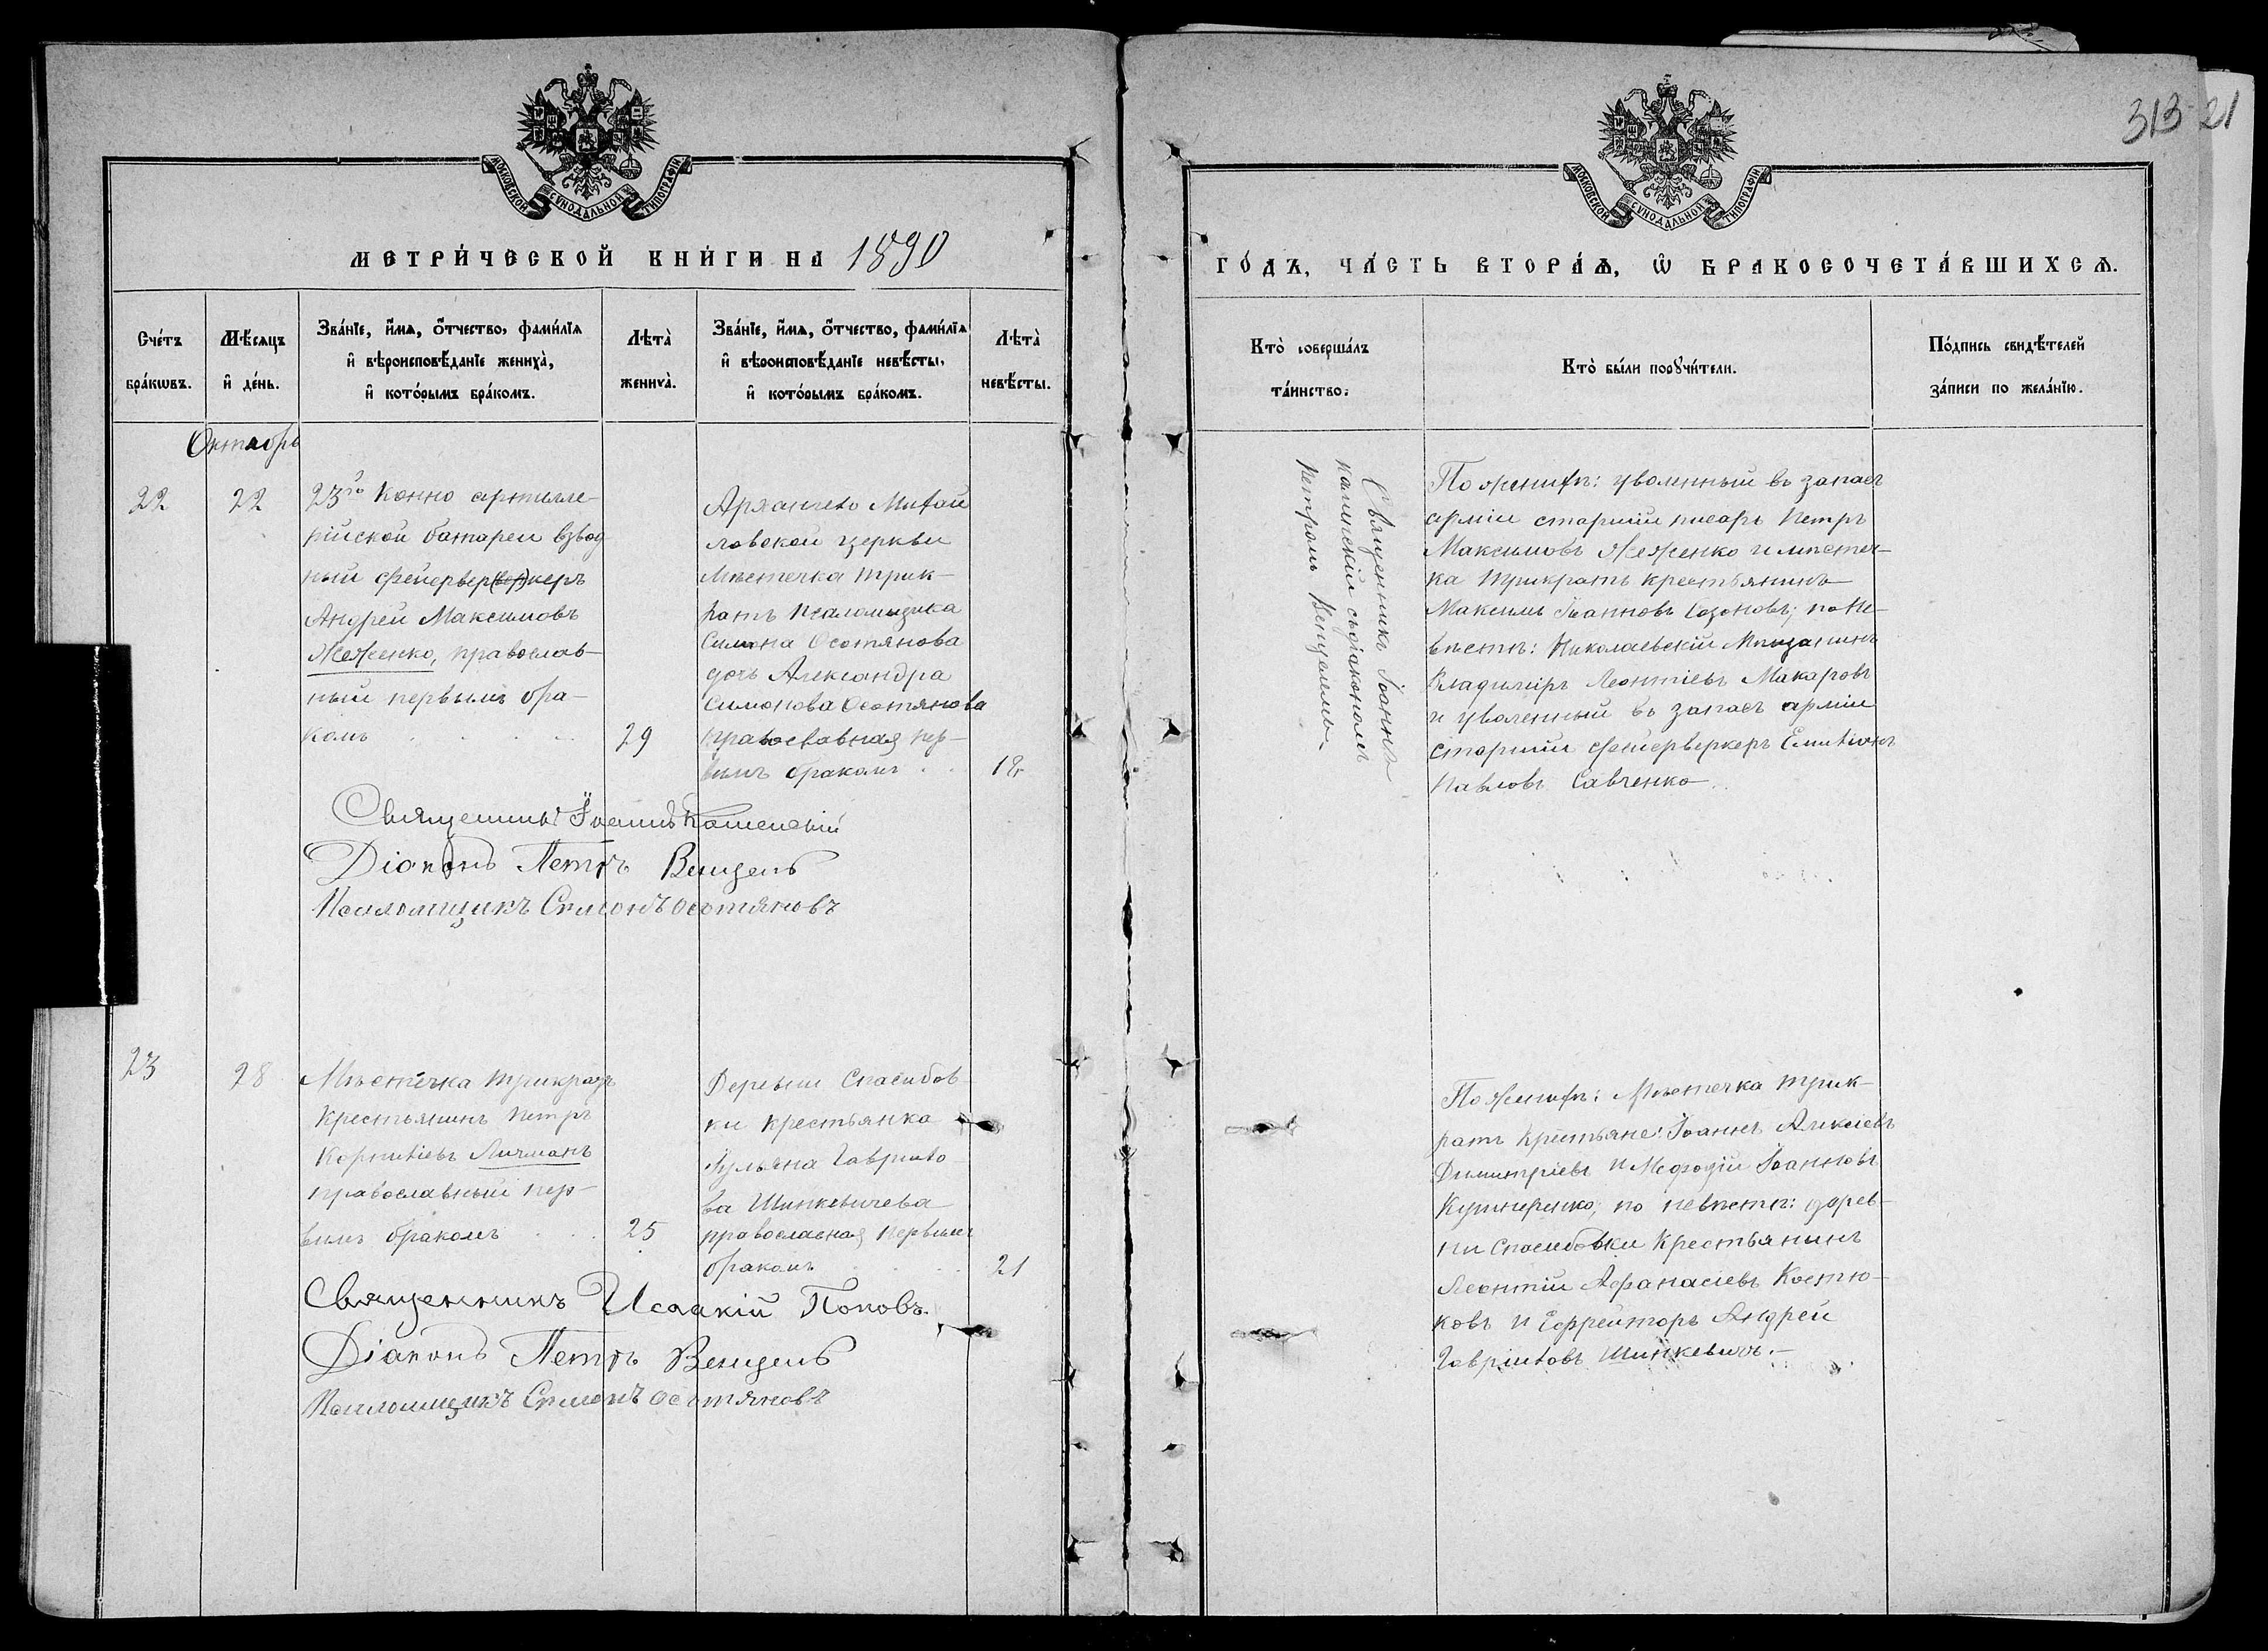 313 21
МОСКОВСКОЙ СУНОДАЛЬНОЙ ТИПОГРАФІИ
МОСКОВСКОЙ СУНОДАЛЬНОЙ ТИПОГРАФІИ
МЕТРИ́ЧЕСКОЙ КНИ́ГИ НА 1890
ГО́ДЪ, ЧА́СТЬ ВТОРА́Ѧ, Ѡ БРАКОСОЧЕТА́ВШИХСѦ.
Сче́тъ
бра́кѡвъ.
Мѣ́сѧцъ
и де́нь.
Зва́нїе, и́мѧ, о́тчество, фами́лїѧ
и вѣроисповѣ́данїе жениха̀,
и кото́рымъ бра́комъ.
Лѣта̀
жениха̀.
Зва́нїе, и́мѧ, о́тчество, фами́лїѧ
и вѣроисповѣ́данїе невѣ́сты,
и кото́рымъ бра́комъ.
Лѣта̀
невѣ́сты.
Кто̀ соверша́лъ
та́инство.
Кто̀ бы́ли порꙋчи́тели.
По́дпись свидѣ́телей
за́писи по жела́нїю.
Октябрь
22
22
23го Конно артилле-
рійской батареи взвод
ный фейервер(вер)керъ
Андрей Максимовъ
Жеженко, православ-
ный первымъ бра-
комъ
29
Архангело Михай
ловской церкви
Мѣстечка Трик-
ратъ Псаломщика
Симона Осотянова
дочь Александра
Симонова Осотянова
православная пер-
вымъ бракомъ
18
Священникъ Іоаннъ
Каминскій съ діакономъ
Петромъ Венцелемъ.
По женихѣ: уволенный въ запасъ
арміи старшій писарь Петръ
Максимовъ Жеженко и мѣстеч-
ка Трикратъ крестьянинъ
Максимъ Іоанновъ Созоновъ; по не-
вѣстѣ: Николаевскій Мѣщанинъ
Владиміръ Леонтіевъ Макаровъ
и уволенный въ запасъ арміи
старшій фейерверкеръ
Павловъ Савченко.
Священникъ Іоаннъ Каменскій
Діаконъ Петръ Венцель
Псаломщикъ Симонъ Осотяновъ
23
28
Мѣстечка Трикратъ
Крестьянинъ Петръ
Корниліевъ Личманъ
православный пер-
вымъ бракомъ
25
Деревни Спасибов
ки крестьянка
Іульяна Гаврило
ва Шинкевичева
православная первымъ
бракомъ
21
По женихѣ: Мѣстечка Трик-
ратъ Крестьяне: Іоаннъ Алексіевъ
Димитріевъ и Мефодій Іоанновъ
Кушниренко; по невѣстѣ: дерев-
ни Спасибовки Крестьянинъ
Леонтій Афанасіевъ Костю-
ковъ и Ефрейторъ Андрей
Гавріиловъ Шинкевичъ.-
Священникъ Исаакій Поповъ.
Діаконъ Петръ Венцель
Псаломщикъ Симонъ Осотяновъ